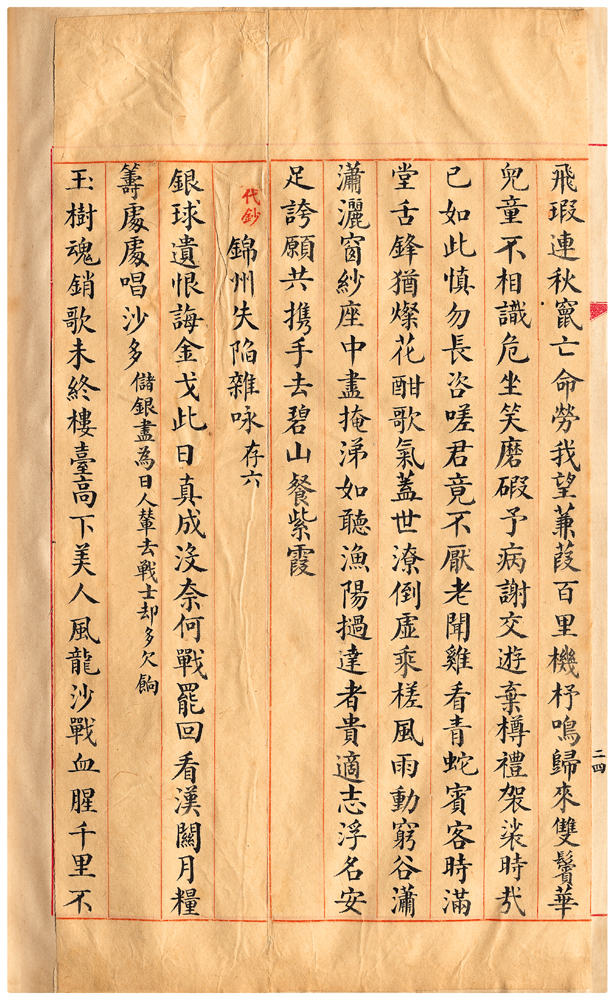 飛瑕連秋竄亡命勞我望蒹葭百里機杼鳴歸來雙鬢華
兒童不相識危坐笑磨碬予病謝交遊棄樽禮袈裟時哉
已如此慎勿長咨嗟君竟不厭老聞雞看青蛇賓客時滿
堂舌鋒猶燦花酣歌氣蓋世潦倒虛乘槎風雨動窮谷瀟
瀟灑窗紗座中盡掩涕如聽漁陽撾達者貴適志浮名安
足誇願共攜手去碧山餐紫霞
代鈔
錦州失陷雜咏存六
銀球遺恨誨金戈此日真成沒奈何戰罷回看漢關月糧
籌處處唱沙多儲銀盡為日人輦去戰士却多欠餉
玉樹魂銷歌未終樓臺高下美人風龍沙戰血腥千里不
二四